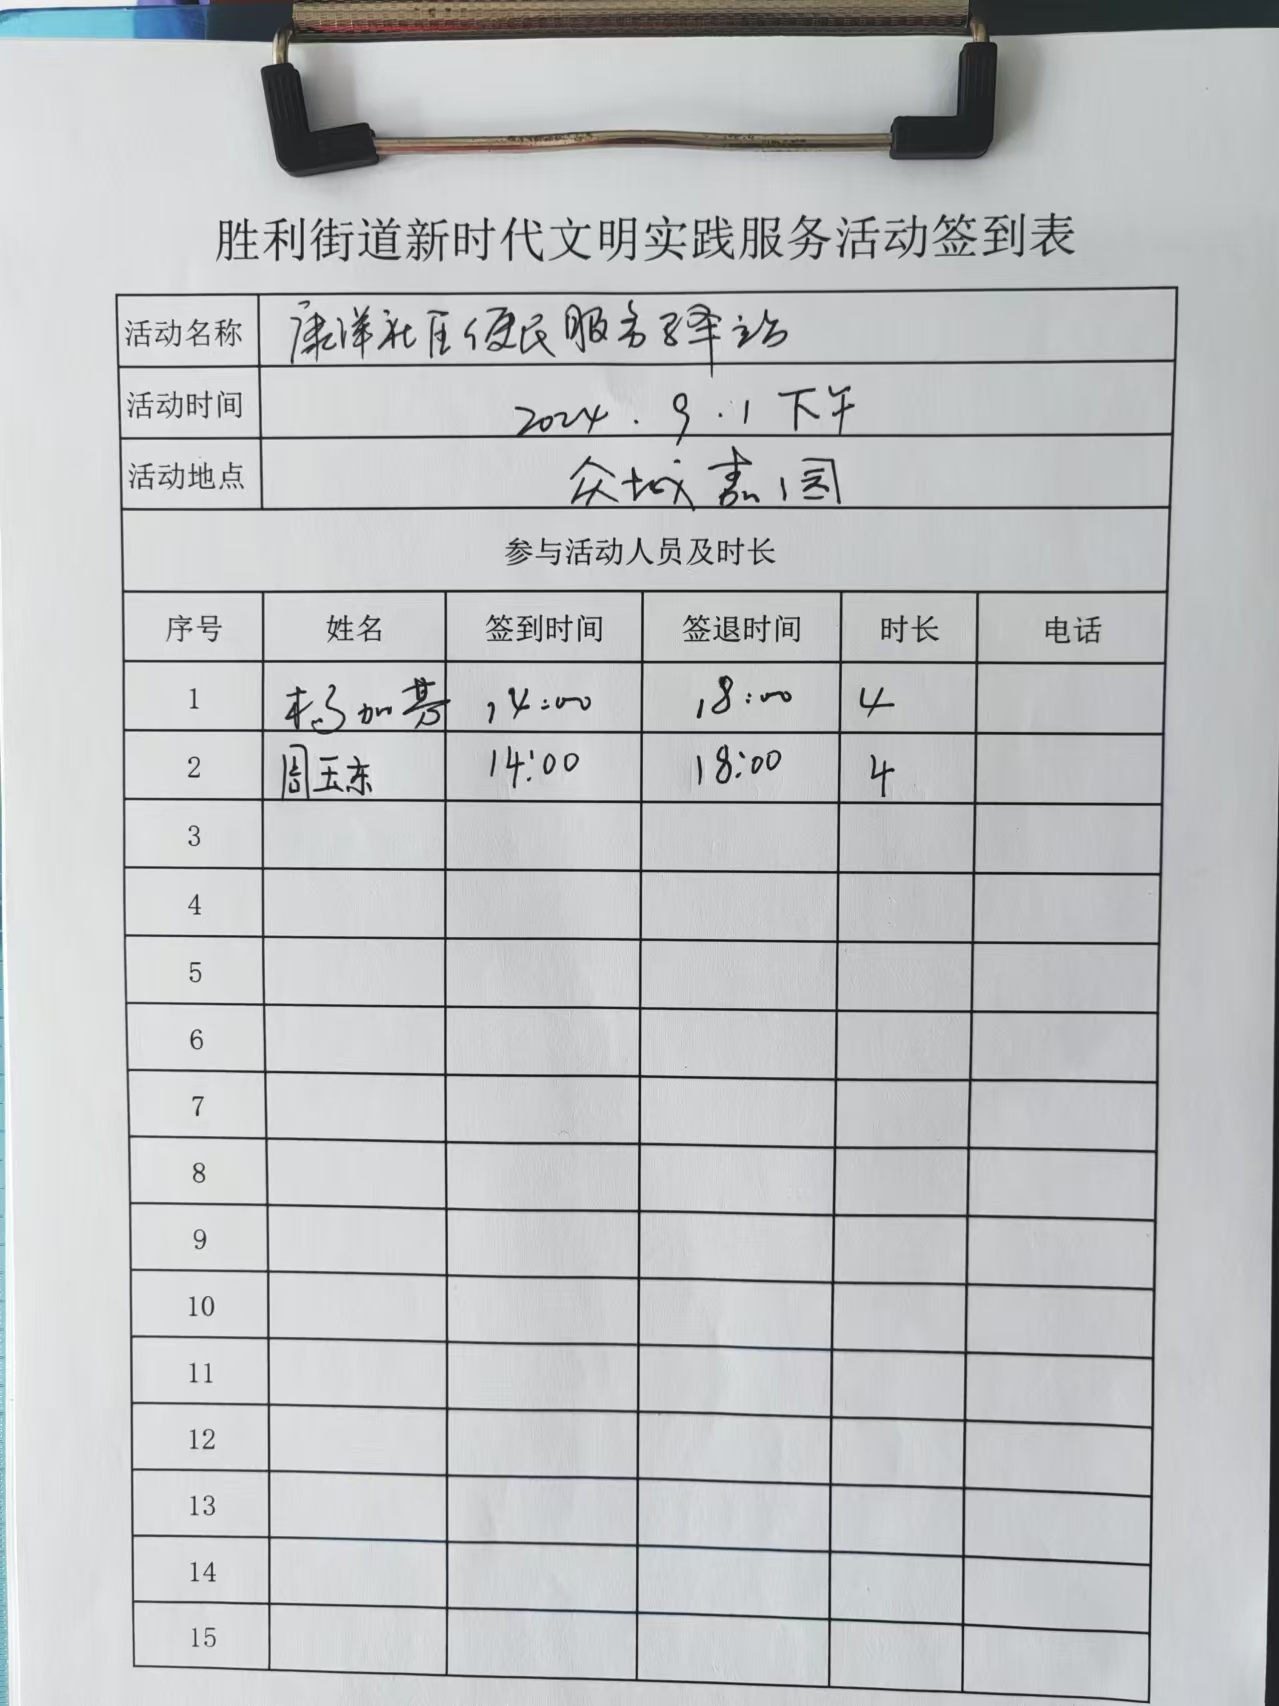 胜利街道新时代文明实践服务活动签到表
活动名称 康洋社区便民服务驿站
活动时间 2024.9.1下午
活动地点 众城嘉园
参与活动人员及时长
序号 姓名 签到时间 签退时间 时长 电话
1 杨加 14:00 18:00 4
2 周玉东 14:00 18:00 4
3
4
5
6
7
8
9
10
11
12
13
14
15